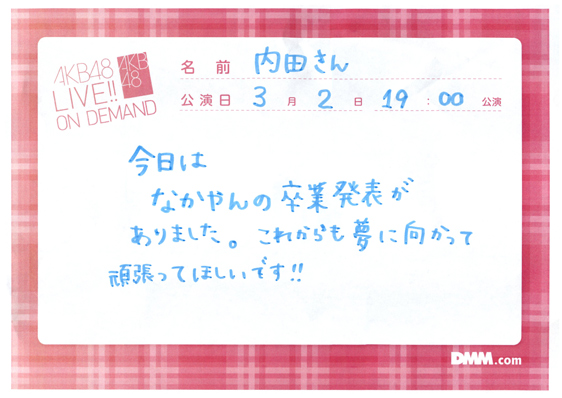 AKB48
LIVE!!
ON DEMAND
AKB
48
名前 内田さん
公演日 3月2日 19:00公演
今日は
なかやんの卒業発表が
ありました。これからも夢に向かって
頑張ってほしいです!!
DMM.com